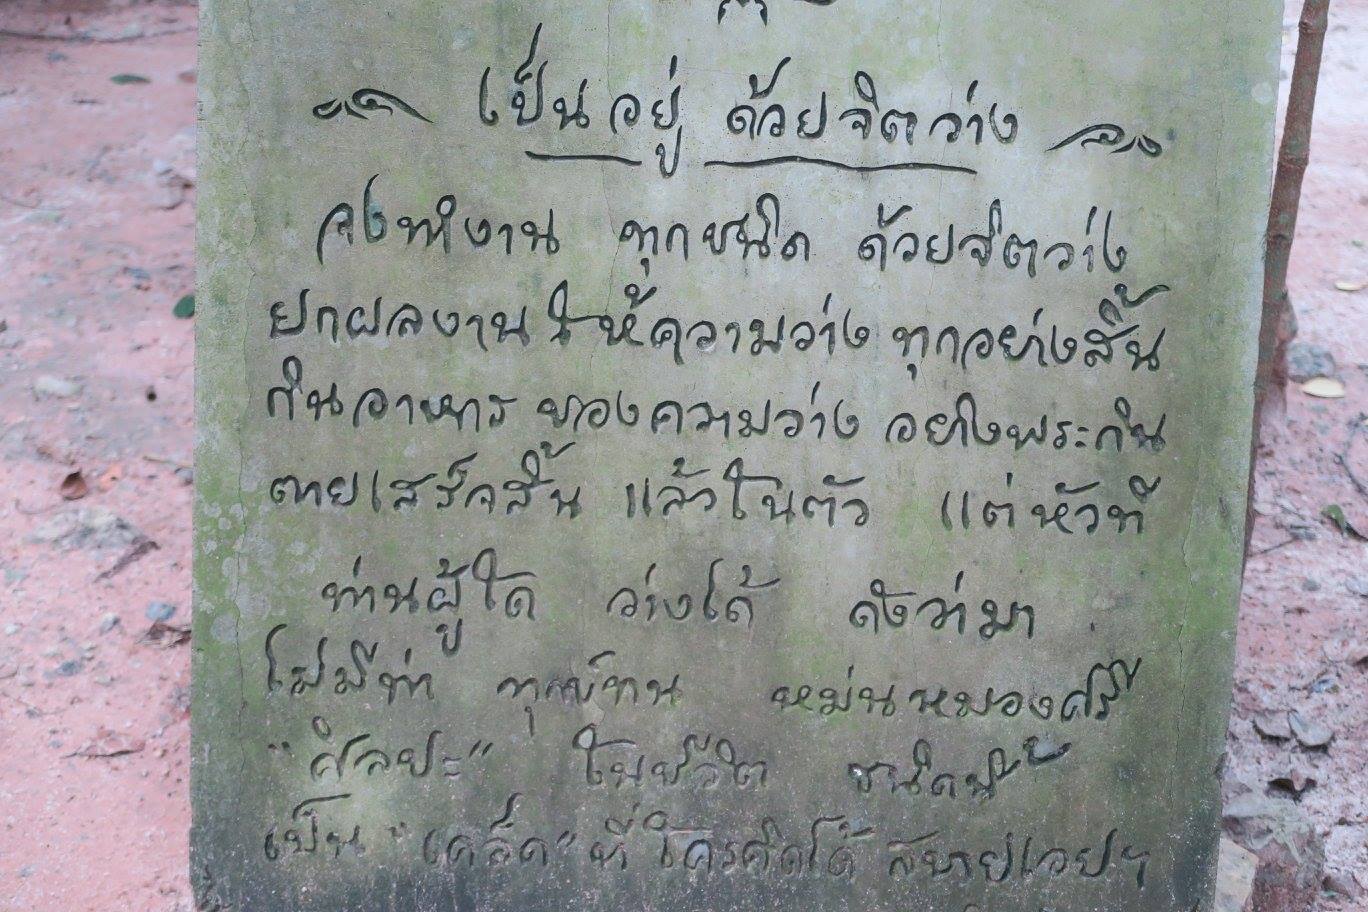 เป็นอยู่ ด้วยจิตว่าง
จงทำงาน ทุกชนิด ด้วยจิตว่าง
ยกผลงาน ให้ความว่าง ทุกอย่างสิ้น
กินอาหาร ของความว่าง อย่างพระกิน
ตายเสร็จสิ้น แล้วในตัว แต่หัวที
ท่านผู้ใด ว่างได้ ดังว่ามา
ไม่มีท่า ทุกข์ทน หม่นหมองศรี
"ศิลปะ" ในชีวิต ชนิดนี้
เป็น "เคล็ด" ที่ใครคิดได้ สบายเอยฯ